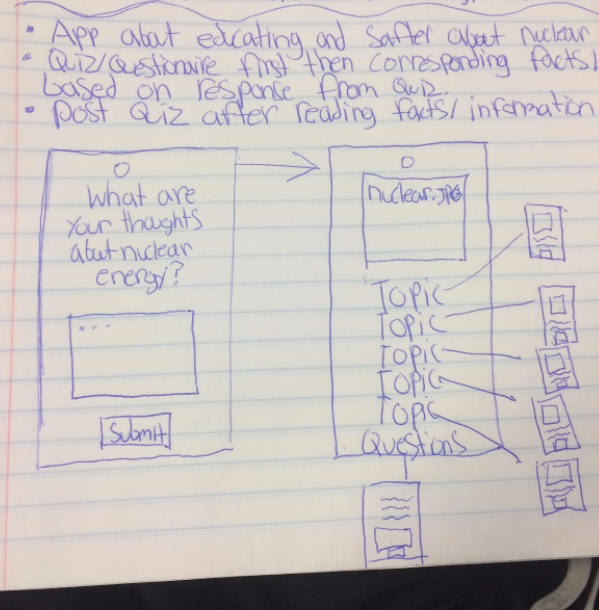 • App about educating and safter about nuclear
• Quiz/Questionaire first then corresponding facts/
based on responce from Quiz.
• Post Quiz after reading facts/ information
What are
your thoughts
about nuclear
energy?
...
Submit
nuclear.JPG
Topic
Topic
Topic
Topic
Topic
Questions